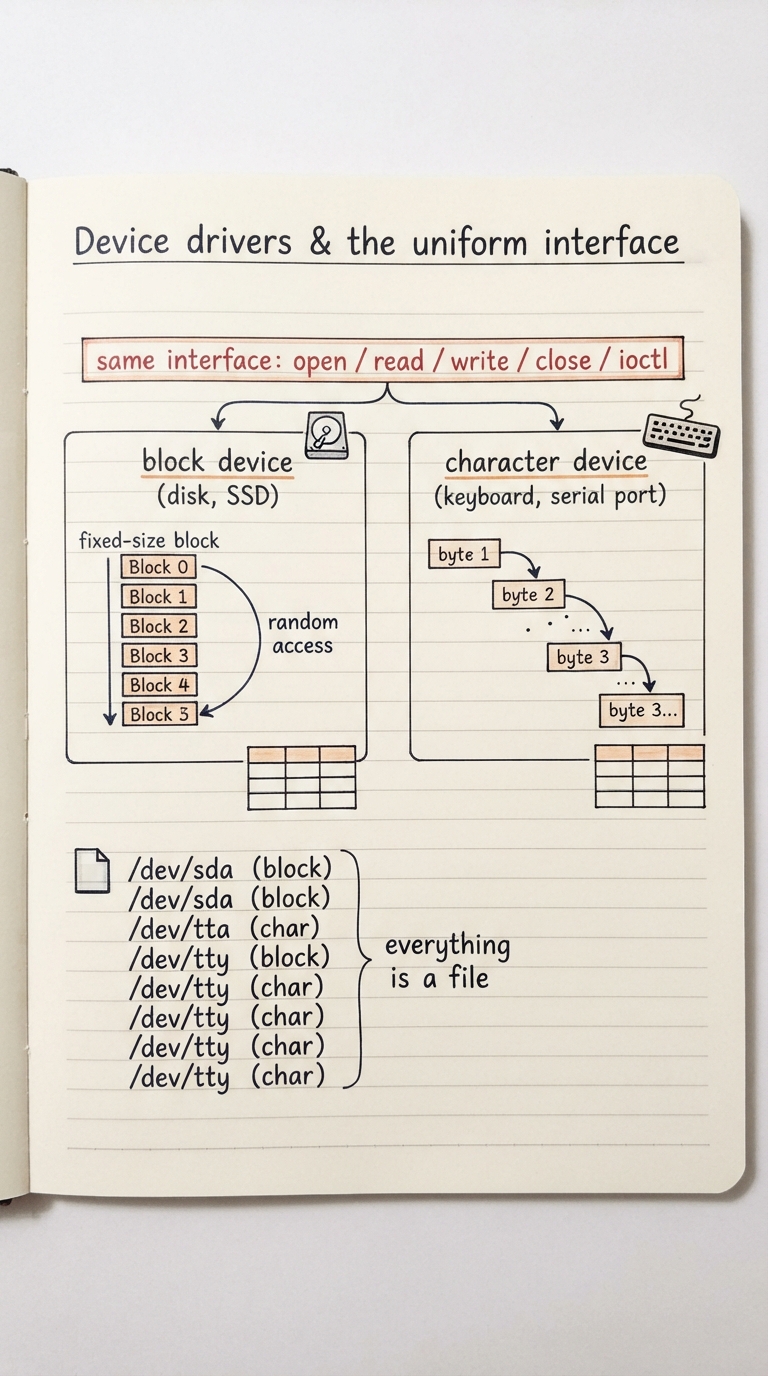 Device drivers & the uniform interface
same interface: open / read / write / close / ioctl
block device
(disk, SSD)
fixed-size block
Block 0
Block 1
Block 2
Block 3
Block 4
Block 3
random
access
character device
(keyboard, serial port)
byte 1
byte 2
. . . ...
byte 3
...
byte 3...
/dev/sda (block)
/dev/sda (block)
/dev/tta (char)
/dev/tty (block)
/dev/tty (char)
/dev/tty (char)
/dev/tty (char)
/dev/tty (char)
everything
is a file